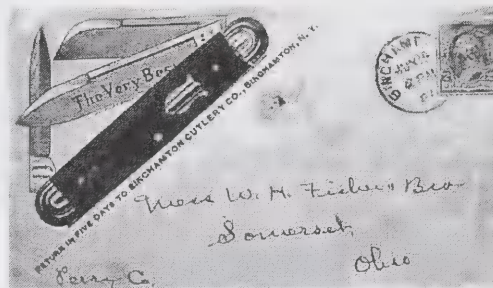 The Very Best
RETURN IN FIVE DAYS TO BINGHAMTON CUTLERY CO., BINGHAMTON, N. Y.
BINGHAMT
Mess W. H. Fisher & Bro
Somerset,
Ohio
Perry Co.